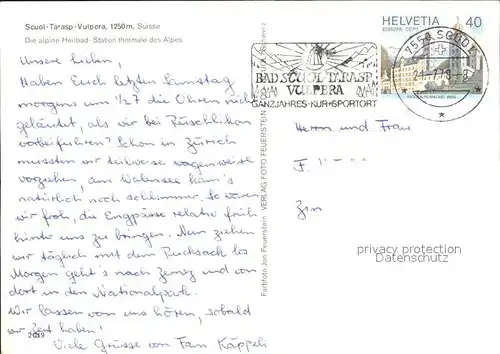 Scuol-Tarasp-Vulpera, 1250m, Suisse
Die alpine Heilbad-Station thermale des Alpes
Unsere Lieben,
Haben Euch letzten Samstag
morgens um 1/2 7 die Ohren nicht
geläutet, als wir bei Rüschlikon
vorbeifuhren? Schon in Zürich
mussten wir teilweise wagenweise
vorziehen, am Walensee kam's
natürlich noch schlimmer. So waren
wir froh, die Engpässe relativ früh
hinter uns zu bringen. Nun ziehen
wir täglich mit dem Rucksack los
Morgen geht's nach Zernez und von
dort in den Nationalpark.
Wir lassen von uns hören, sobald
wir Zeit haben!
2029
Viele Grüsse von Fam Käppeli
Farbfoto Jon Feuerstein VERLAG FOTO FEUERSTEIN
BAD SCUOL-TARASP
VULPERA
GANZJAHRES-KUR+SPORTORT
HELVETIA 40
EUROPA CEPT
7550 SCUOL
Herrn und Frau
F.
privacy protection
Datenschutz